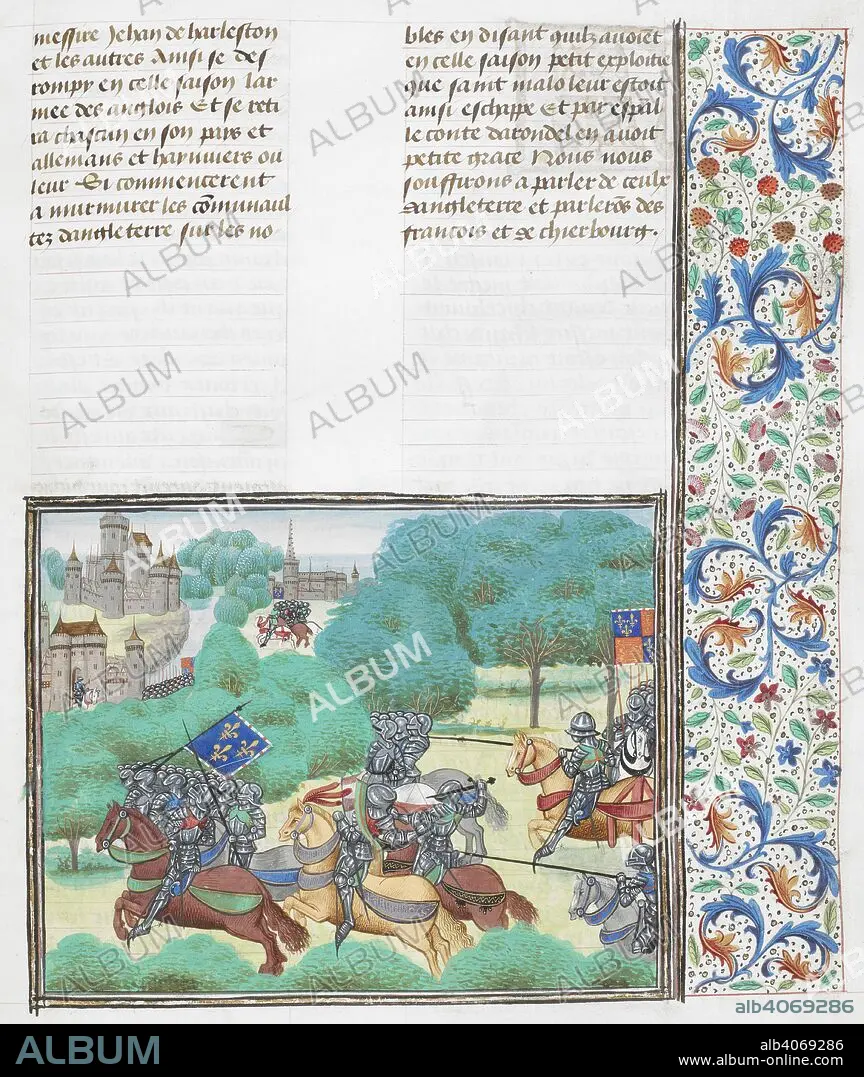 messire Jehan de harleston
et les autres Ainsi se des
rompy en celle saison lar
mee des anglois Et se reti
ra chascun en son pays et
allemans et haynuiers ou
leur Si commencerent
a murmurer les cōmunaul
tez dangleterre sur les no
bles en disant quilz avoiēt
en celle saison petit exploitie
que saint malo leur estoit
ainsi eschappe Et par espāl
le conte darondel en avoit
petite grace Nous nous
souffirons a parler de ceulx
dangleterre et parlerōs des
francois et de chierbourg.
ALBUM
alb4069286
ALBUM
alb4069286
www.album-online.com